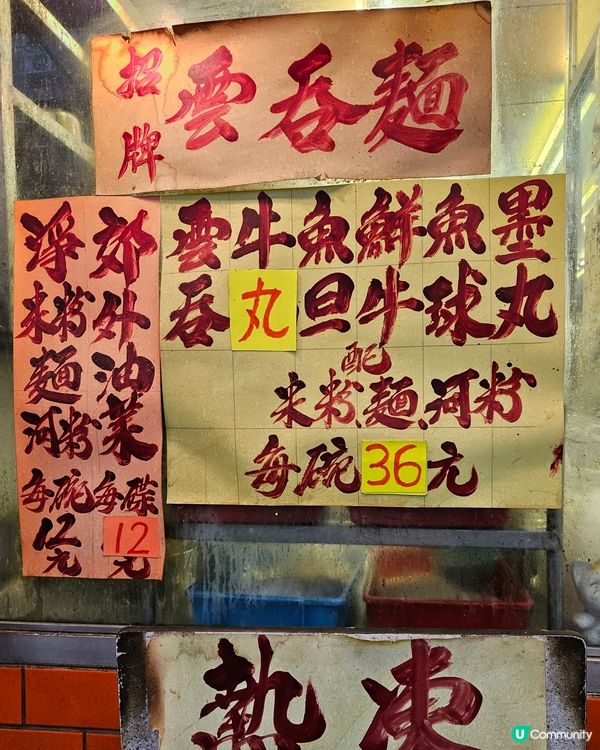 招牌
雲吞麵
雲吞
牛丸
魚旦
鮮牛
魚球
墨丸
配
米粉、麵、河粉
每碗36元
郊外油菜
每碟12元
淨米粉麵河粉
每碗12元
熱 凍
U Community